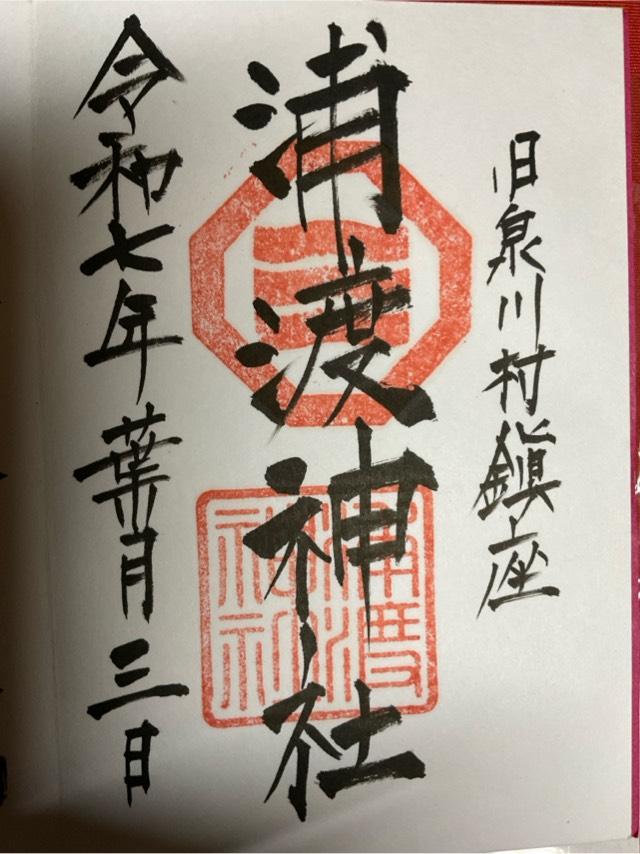 旧泉川村鎮座
浦渡神社
浦渡
神社
令和七年葉月三日